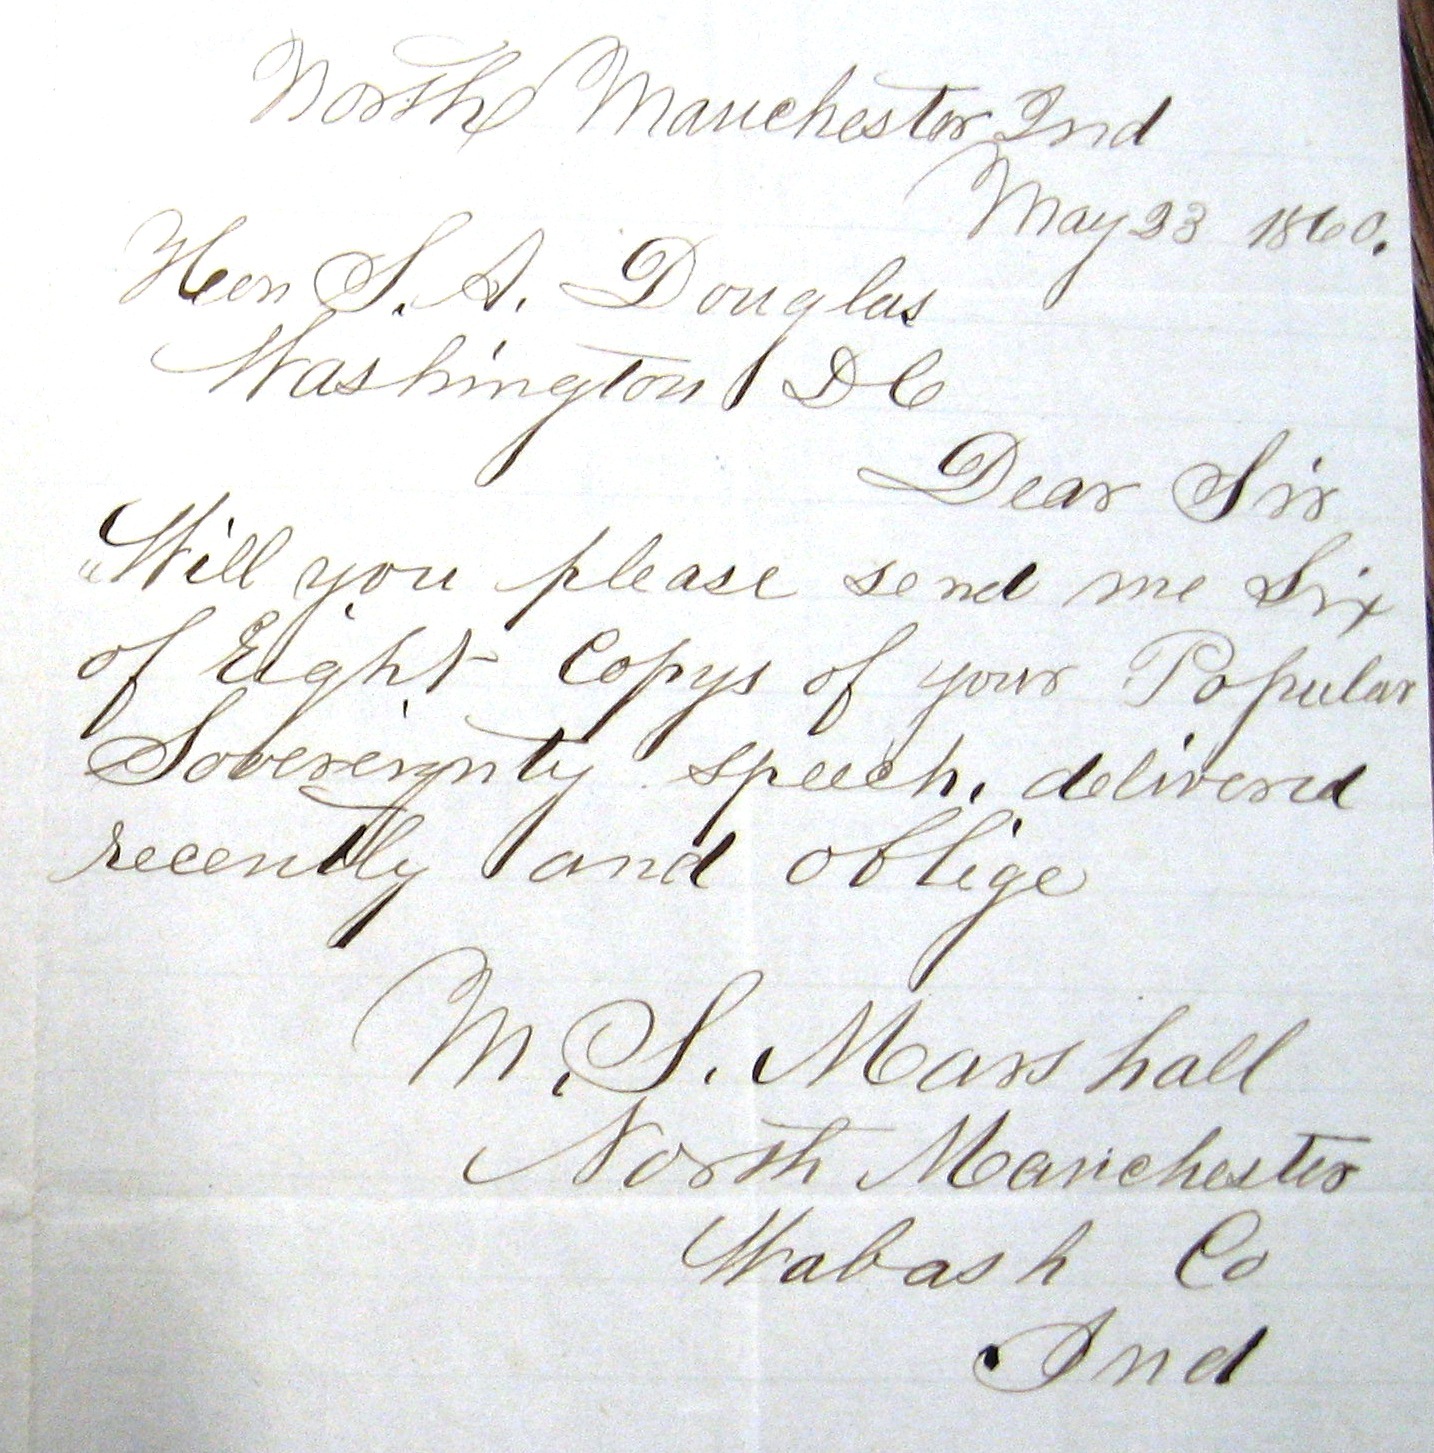 North Manchester Ind
May 23 1860.
Hon S. A. Douglas
Washington D C
Dear Sir
Will you please send me Six
of Eight Copys of your Popular
Sovereignty speech, delivered
recently and oblige
M. S. Marshall
North Manchester
Wabash Co
Ind